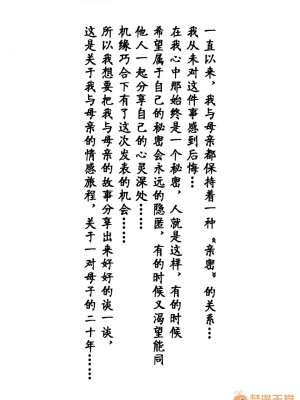 一直以来，我与母亲都保持着一种“亲密”的关系…
我从未对这件事感到后悔…
在我心中那始终是一个秘密，人就是这样，有的时候
希望属于自己的秘密会永远的隐匿，有的时候又渴望能同
他人一起分享自己的心灵深处……
机缘巧合下有了这次发表的机会……
所以我想要把我与母亲的故事分享出来好好的谈一谈，
这是关于我与母亲的情感旅程，关于一对母子的二十年……